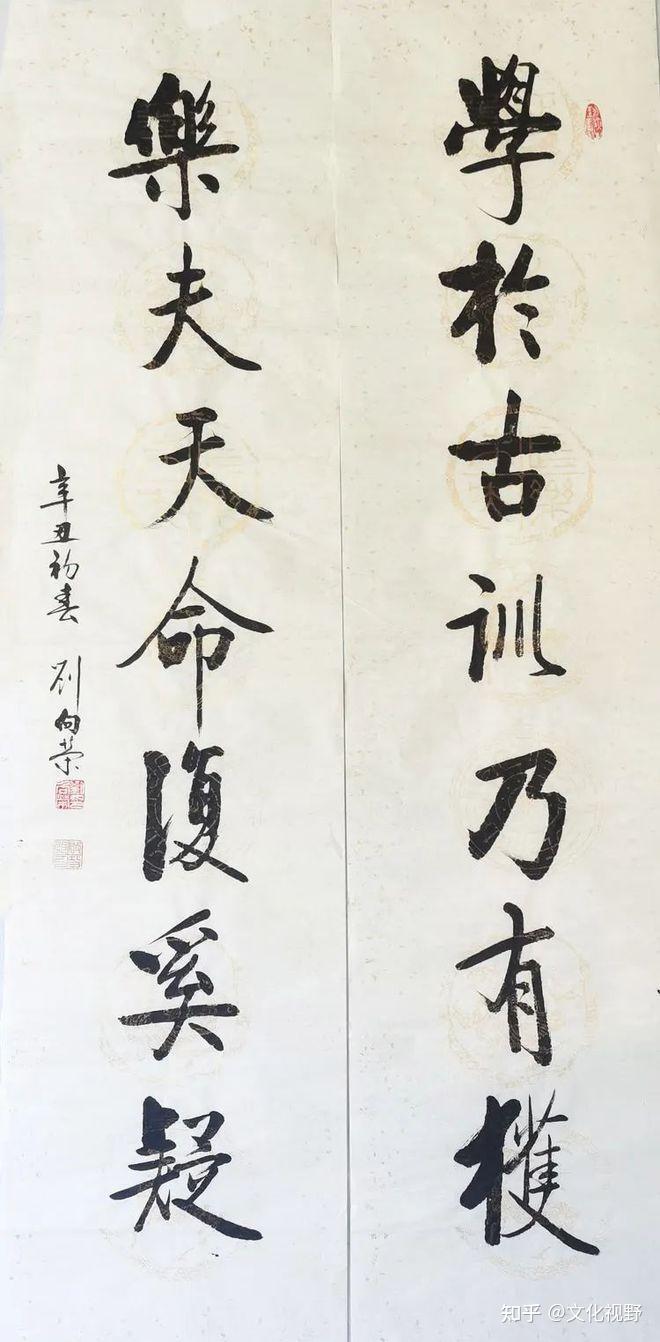 學於古訓乃有獲
樂夫天命復奚疑
辛丑初春 劉向榮
知乎 @文化视野